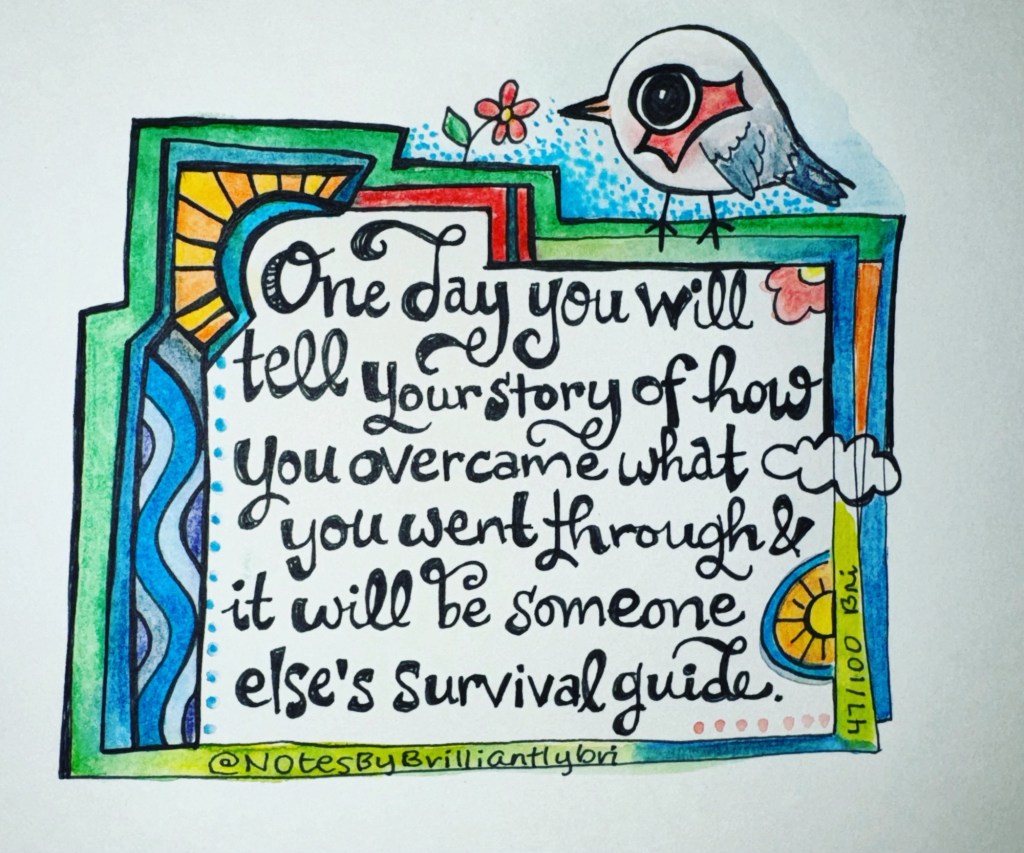 One day you will
tell your story of how
you overcame what
you went through &
it will be someone
else's survival guide.
47/100 Bri
@NotesByBrilliantlybri